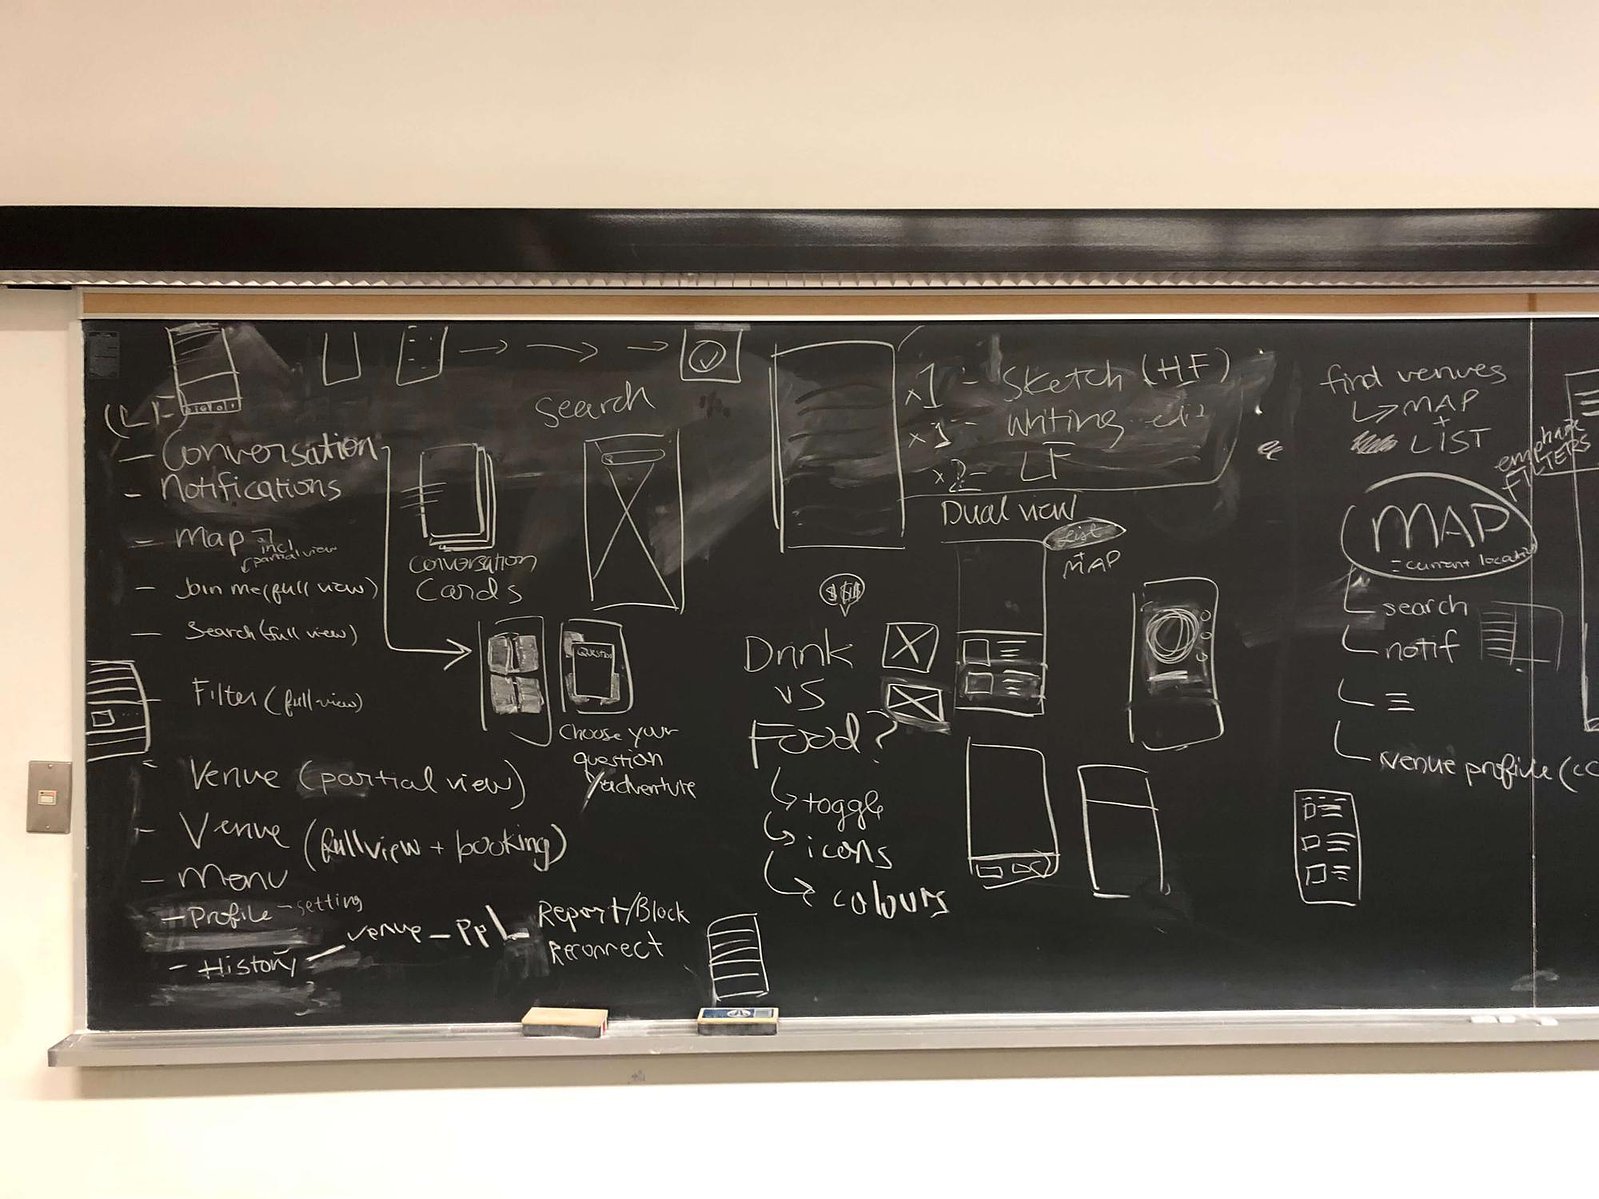 (LF)
- Conversation
- Notifications
- Map
incl
partial view
- Join me (full view)
- Search (full view)
- Filter (full view)
- Venue (partial view)
- Venue (full view + booking)
- Menu
- Profile - setting
- History
venue - PPL
Report/Block
Reconnect
Search
Conversation
Cards
QUESTION
Choose your
question
adventure
x1 - Sketch (HF)
x1 - Writing
x2 - LF
Dual view
List
+
MAP
$$$
Drink
vs
Food?
toggle
icons
colours
find venues
MAP
+
LIST
FILTERS
MAP
- current
search
notif
venue profile